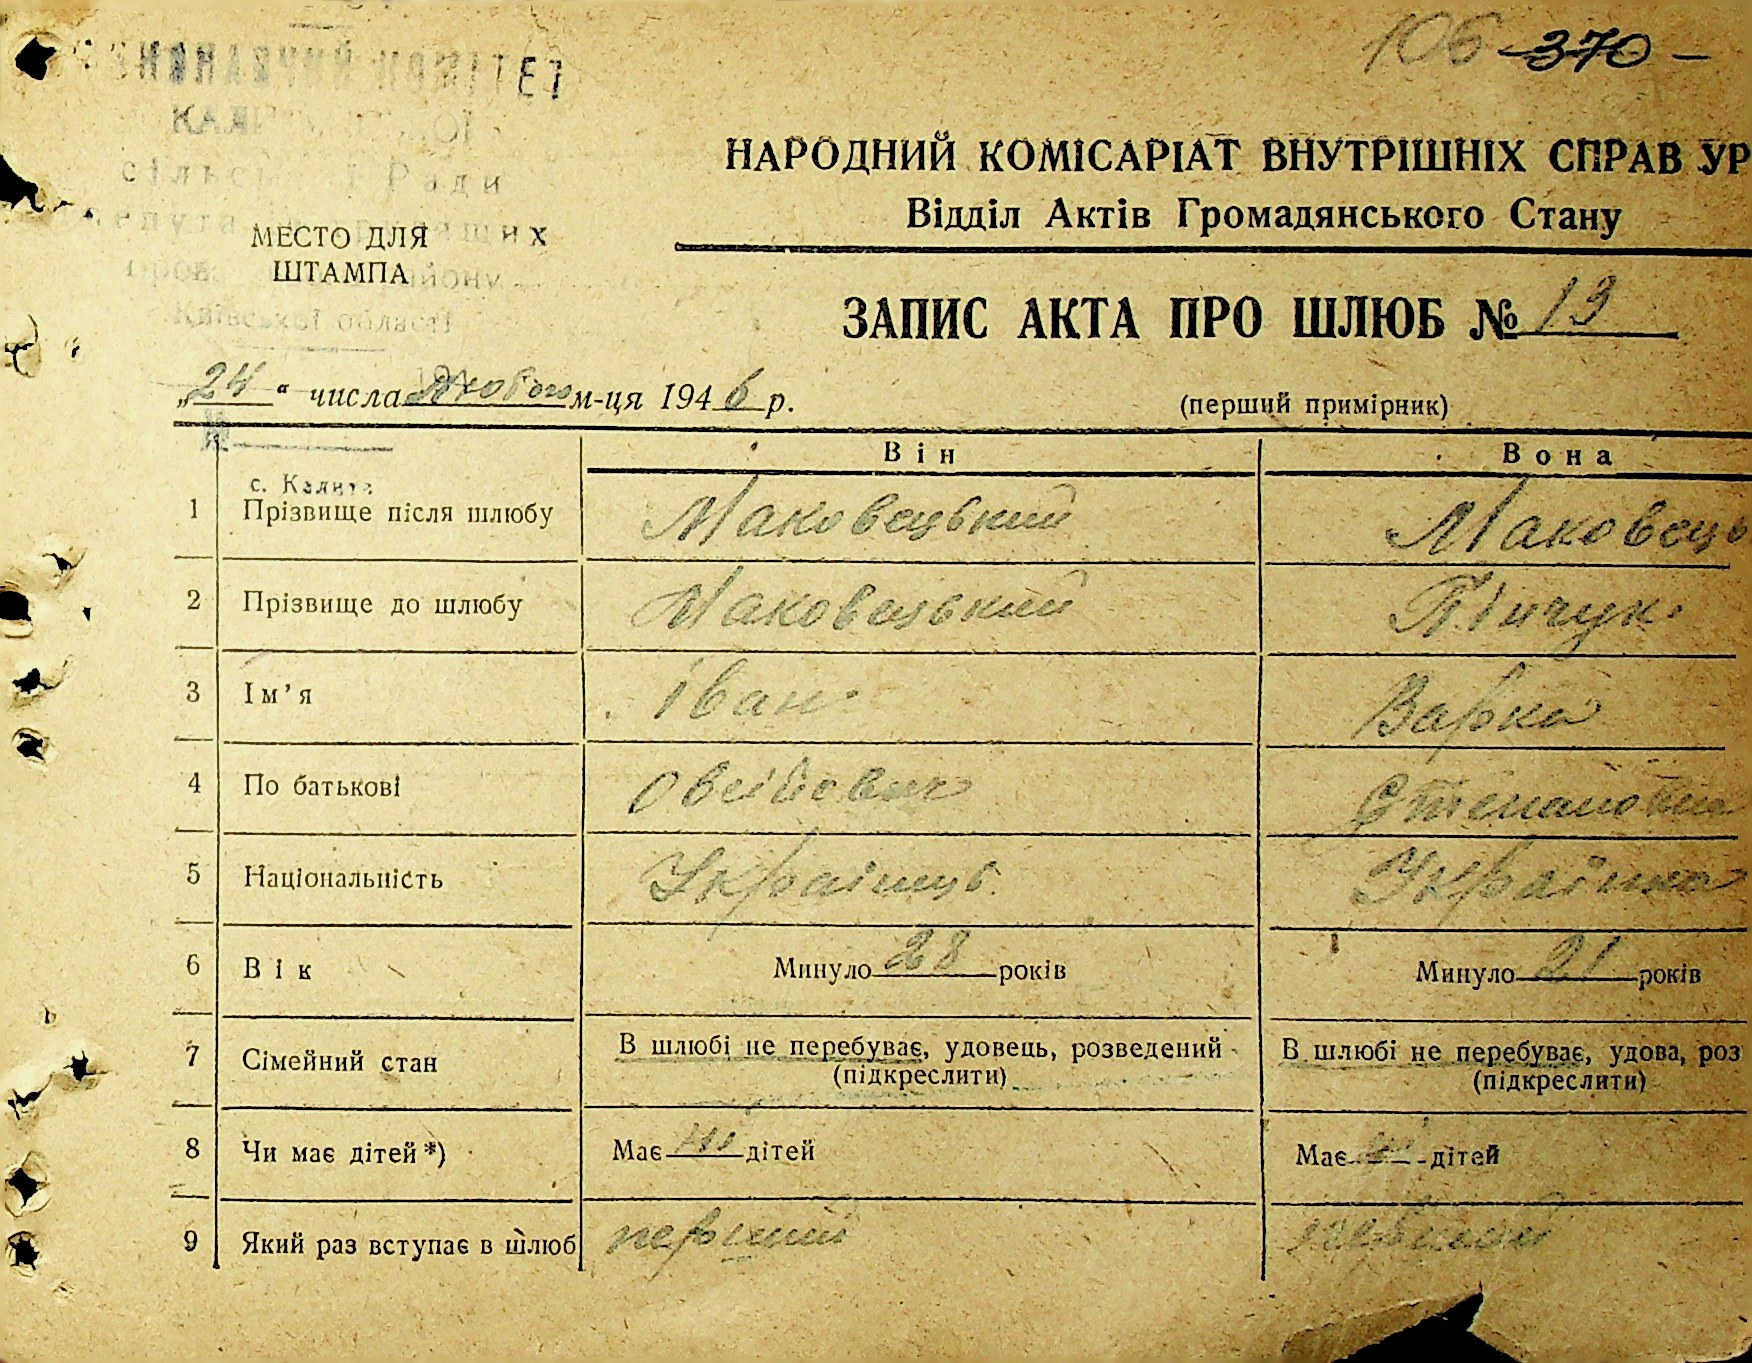 106 370 –
ВИКОНАВЧИЙ КОМІТЕТ
сільської Ради
НАРОДНИЙ КОМІСАРІАТ ВНУТРІШНІХ СПРАВ УР
Відділ Актів Громадянського Стану
МЕСТО ДЛЯ
ШТАМПА
Київської області
ЗАПИС АКТА ПРО ШЛЮБ № 13
„24“ числа Лютого м-ця 1946 р.
(перший примірник)
№
Він Вона
с. Калита
1 Прізвище після шлюбу Маковецький Маковець
2 Прізвище до шлюбу Маковецький
3 Ім’я Іван Варка
4 По батькові Овсійович Степановна
5 Національність Українць Українка
6 Вік Минуло 28 років Минуло 21 років
7 Сімейний стан В шлюбі не перебуває, удовець, розведений В шлюбі не перебуває, удова, роз
(підкреслити) (підкреслити)
8 Чи має дітей*) Має ні дітей Має ні дітей
9 Який раз вступає в шлюб перший перший